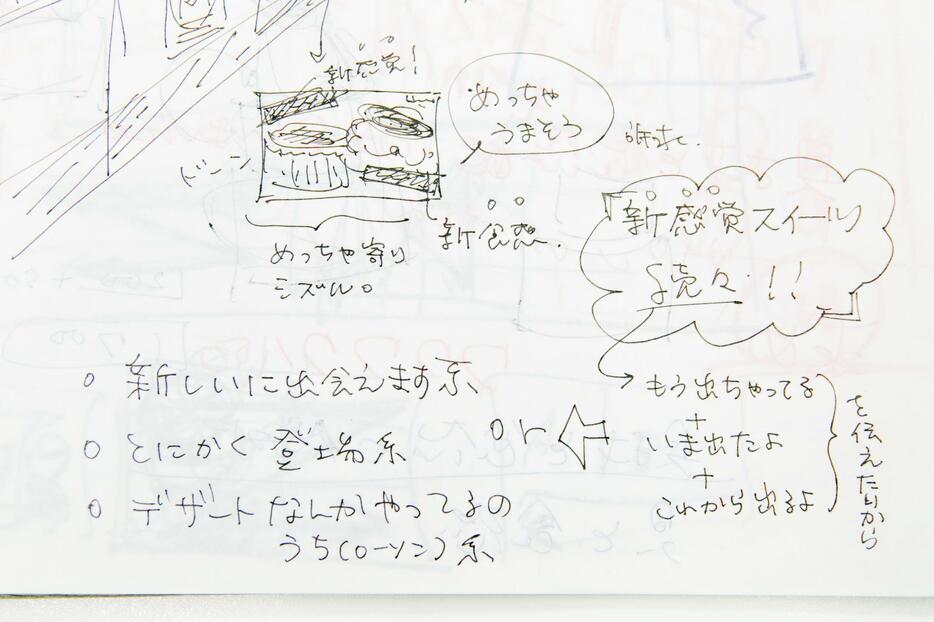 新感覚！
めっちゃ
うまそう
ドーン
新食感.
めっちゃ寄り
シズル。
『新感覚スイーツ
続々!!』
新しいに出会えます系
とにかく登場系
デザートなんかやってるの
うち(ローソン)系
or
もう出ちゃってる
+
いま出たよ
+
これから出るよ
を伝えたいから